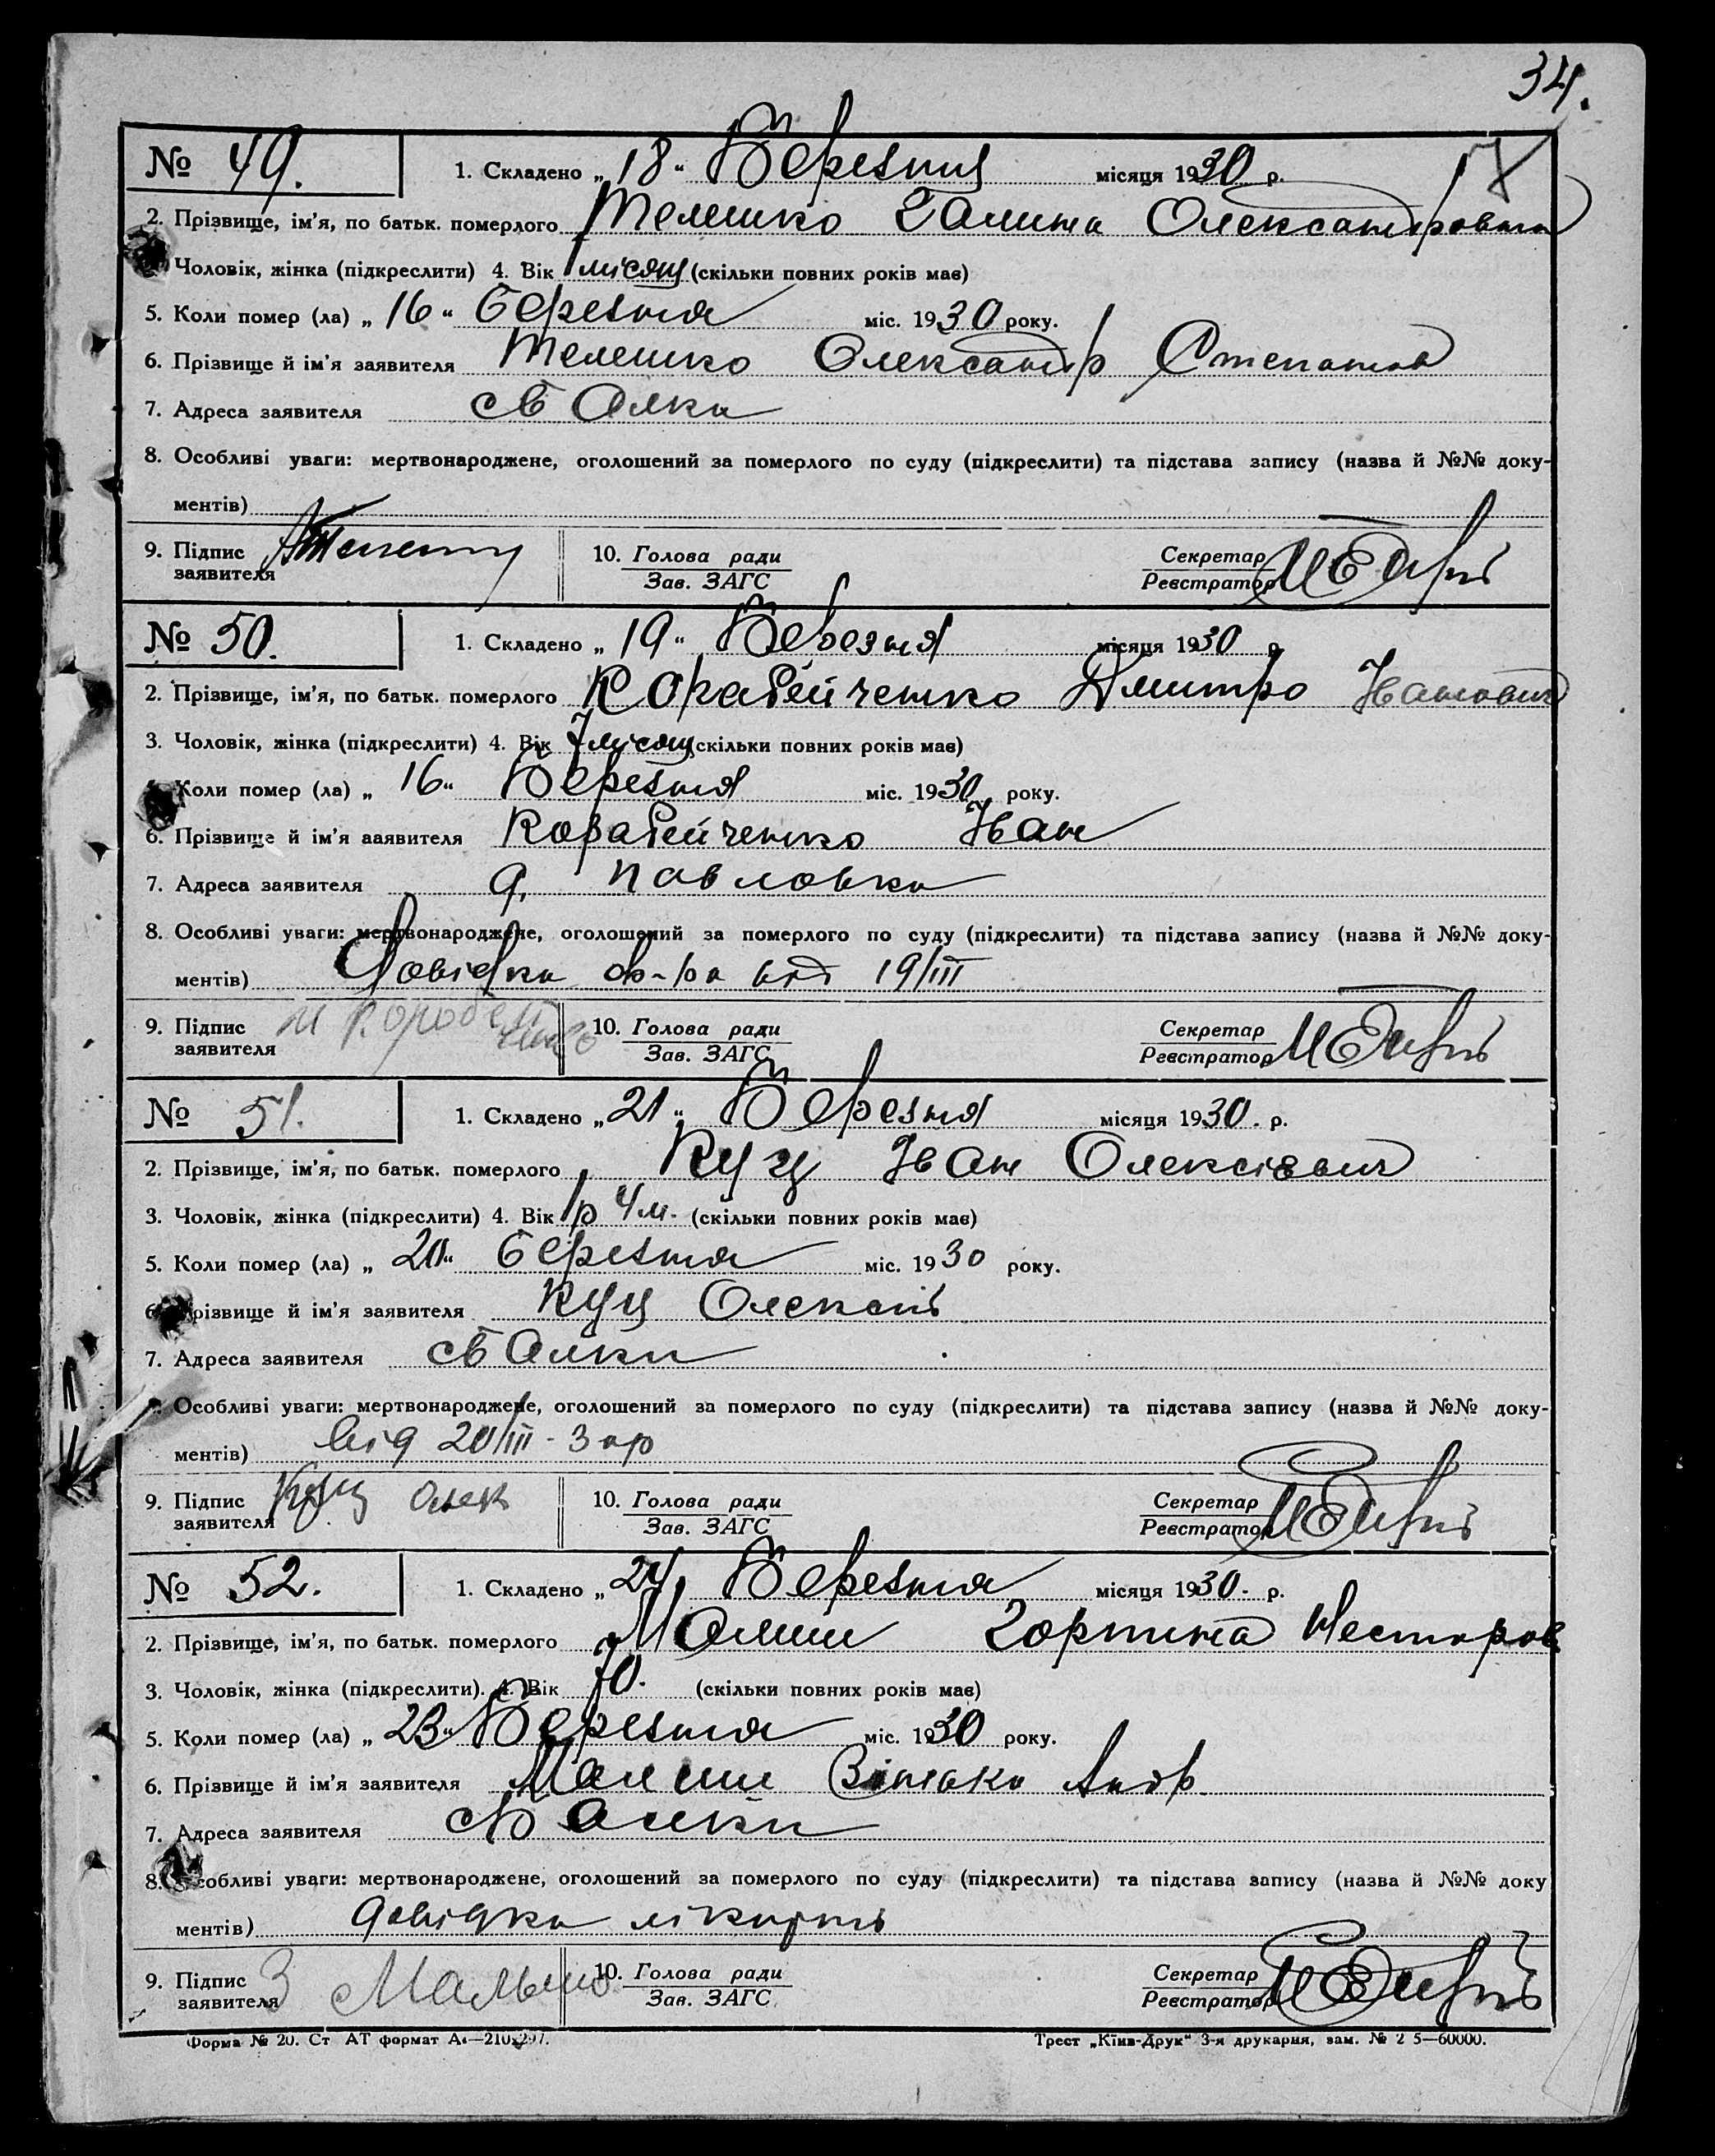 34.
№ 49. 1. Складено „18“ Березня місяця 1930 р.
2. Прізвище, ім’я, по батьк. померлого Телешко Галина Олександровна
Чоловік, жінка (підкреслити) 4. Вік 1 місяц (скільки повних років має)
5. Коли помер (ла) „16“ березня міс. 1930 року.
6. Прізвище й ім’я заявителя Телешко Олександр Степанов
7. Адреса заявителя
8. Особливі уваги: мертвонароджене, оголошений за померлого по суду (підкреслити) та підстава запису (назва й №№ доку-
ментів)
9. Підпис заявителя 10. Голова ради Зав. ЗАГС Секретар Реєстратор
№ 50. 1. Складено „19“ Березня місяця 1930 р.
2. Прізвище, ім’я, по батьк. померлого Корабейченко Дмитро Іванович
3. Чоловік, жінка (підкреслити) 4. Вік 7 місяц (скільки повних років має)
Коли помер (ла) „16“ Березня міс. 1930 року.
6. Прізвище й ім’я заявителя Корабейченко Іван
7. Адреса заявителя д. Павловка
8. Особливі уваги: мертвонароджене, оголошений за померлого по суду (підкреслити) та підстава запису (назва й №№ доку-
ментів) Довідка від 19/III
9. Підпис заявителя 10. Голова ради Зав. ЗАГС Секретар Реєстратор
№ 51. 1. Складено „21“ Березня місяця 1930. р.
2. Прізвище, ім’я, по батьк. померлого Куц Іван Олексієвич
3. Чоловік, жінка (підкреслити) 4. Вік 1р 4м. (скільки повних років має)
5. Коли помер (ла) „20“ березня міс. 1930 року.
6. Прізвище й ім’я заявителя Куц Олексій
7. Адреса заявителя
Особливі уваги: мертвонароджене, оголошений за померлого по суду (підкреслити) та підстава запису (назва й №№ доку-
ментів) від 20/III
9. Підпис заявителя Куц Олек 10. Голова ради Зав. ЗАГС Секретар Реєстратор
№ 52. 1. Складено „24“ Березня місяця 1930. р.
2. Прізвище, ім’я, по батьк. померлого Горпина Несторов
3. Чоловік, жінка (підкреслити). 4. Вік 70. (скільки повних років має)
5. Коли помер (ла) „23“ Березня міс. 1930 року.
6. Прізвище й ім’я заявителя Андр
7. Адреса заявителя
8. Особливі уваги: мертвонароджене, оголошений за померлого по суду (підкреслити) та підстава запису (назва й №№ доку
ментів) довідка лікарні
9. Підпис заявителя 10. Голова ради Зав. ЗАГС Секретар Реєстратор
Форма № 20. Ст АТ формат А4—210х297. Трест „Київ-Друк“ 3-я друкарня, зам. № 2 5—60000.